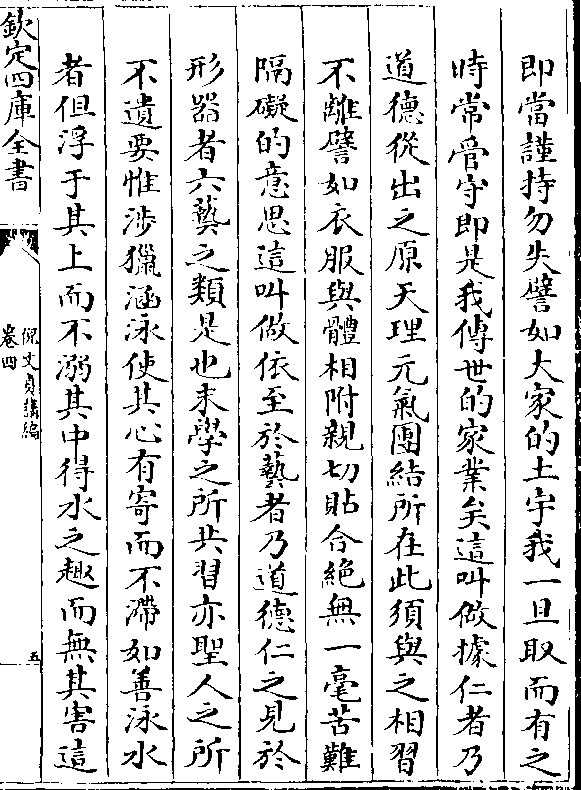 即當謹持勿失譬如大家的土宇我一旦取而有之
時常管守即是我傳世的家業矣這叫做據仁者乃
道德從出之原天理元氣團結所在此須與之相習
不離譬如衣服與體相附親切貼合絶無一毫苦難
隔礙的意思這叫做依至於藝者乃道德仁之見於
形器者六藝之類是也末學之所共習亦聖人之所
不遺要惟涉獵涵泳使其心有寄而不滯如善泳水
者但浮于其上而不溺其中得水之趣而無其害這
欽定四庫全書
倪文貞講編
卷四
五